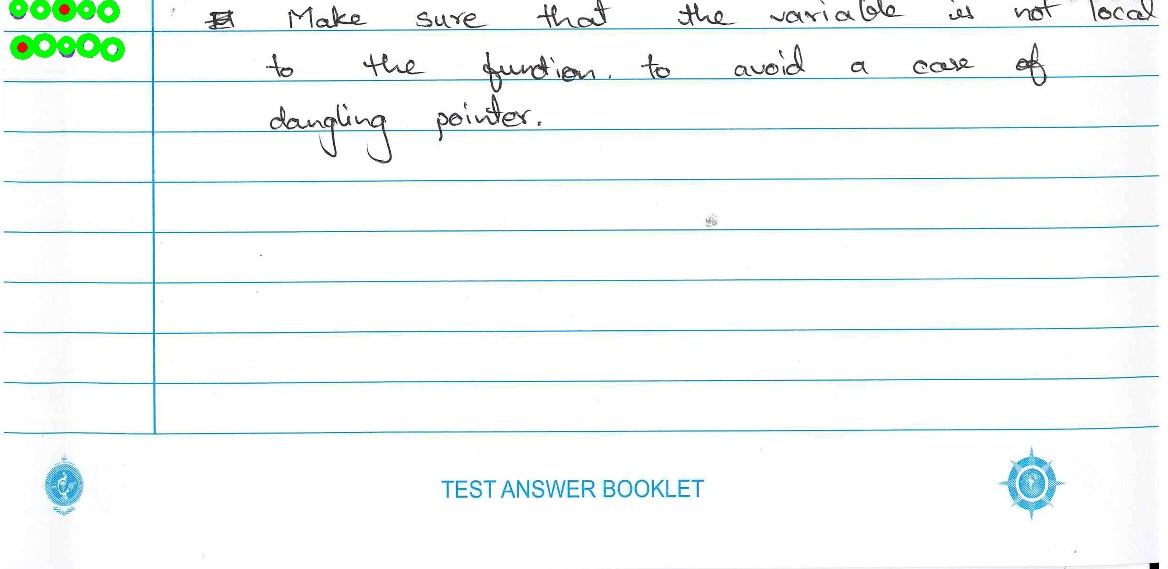 Make sure that the variable is not local
to the function. to avoid a case of
dangling pointer.
TEST ANSWER BOOKLET